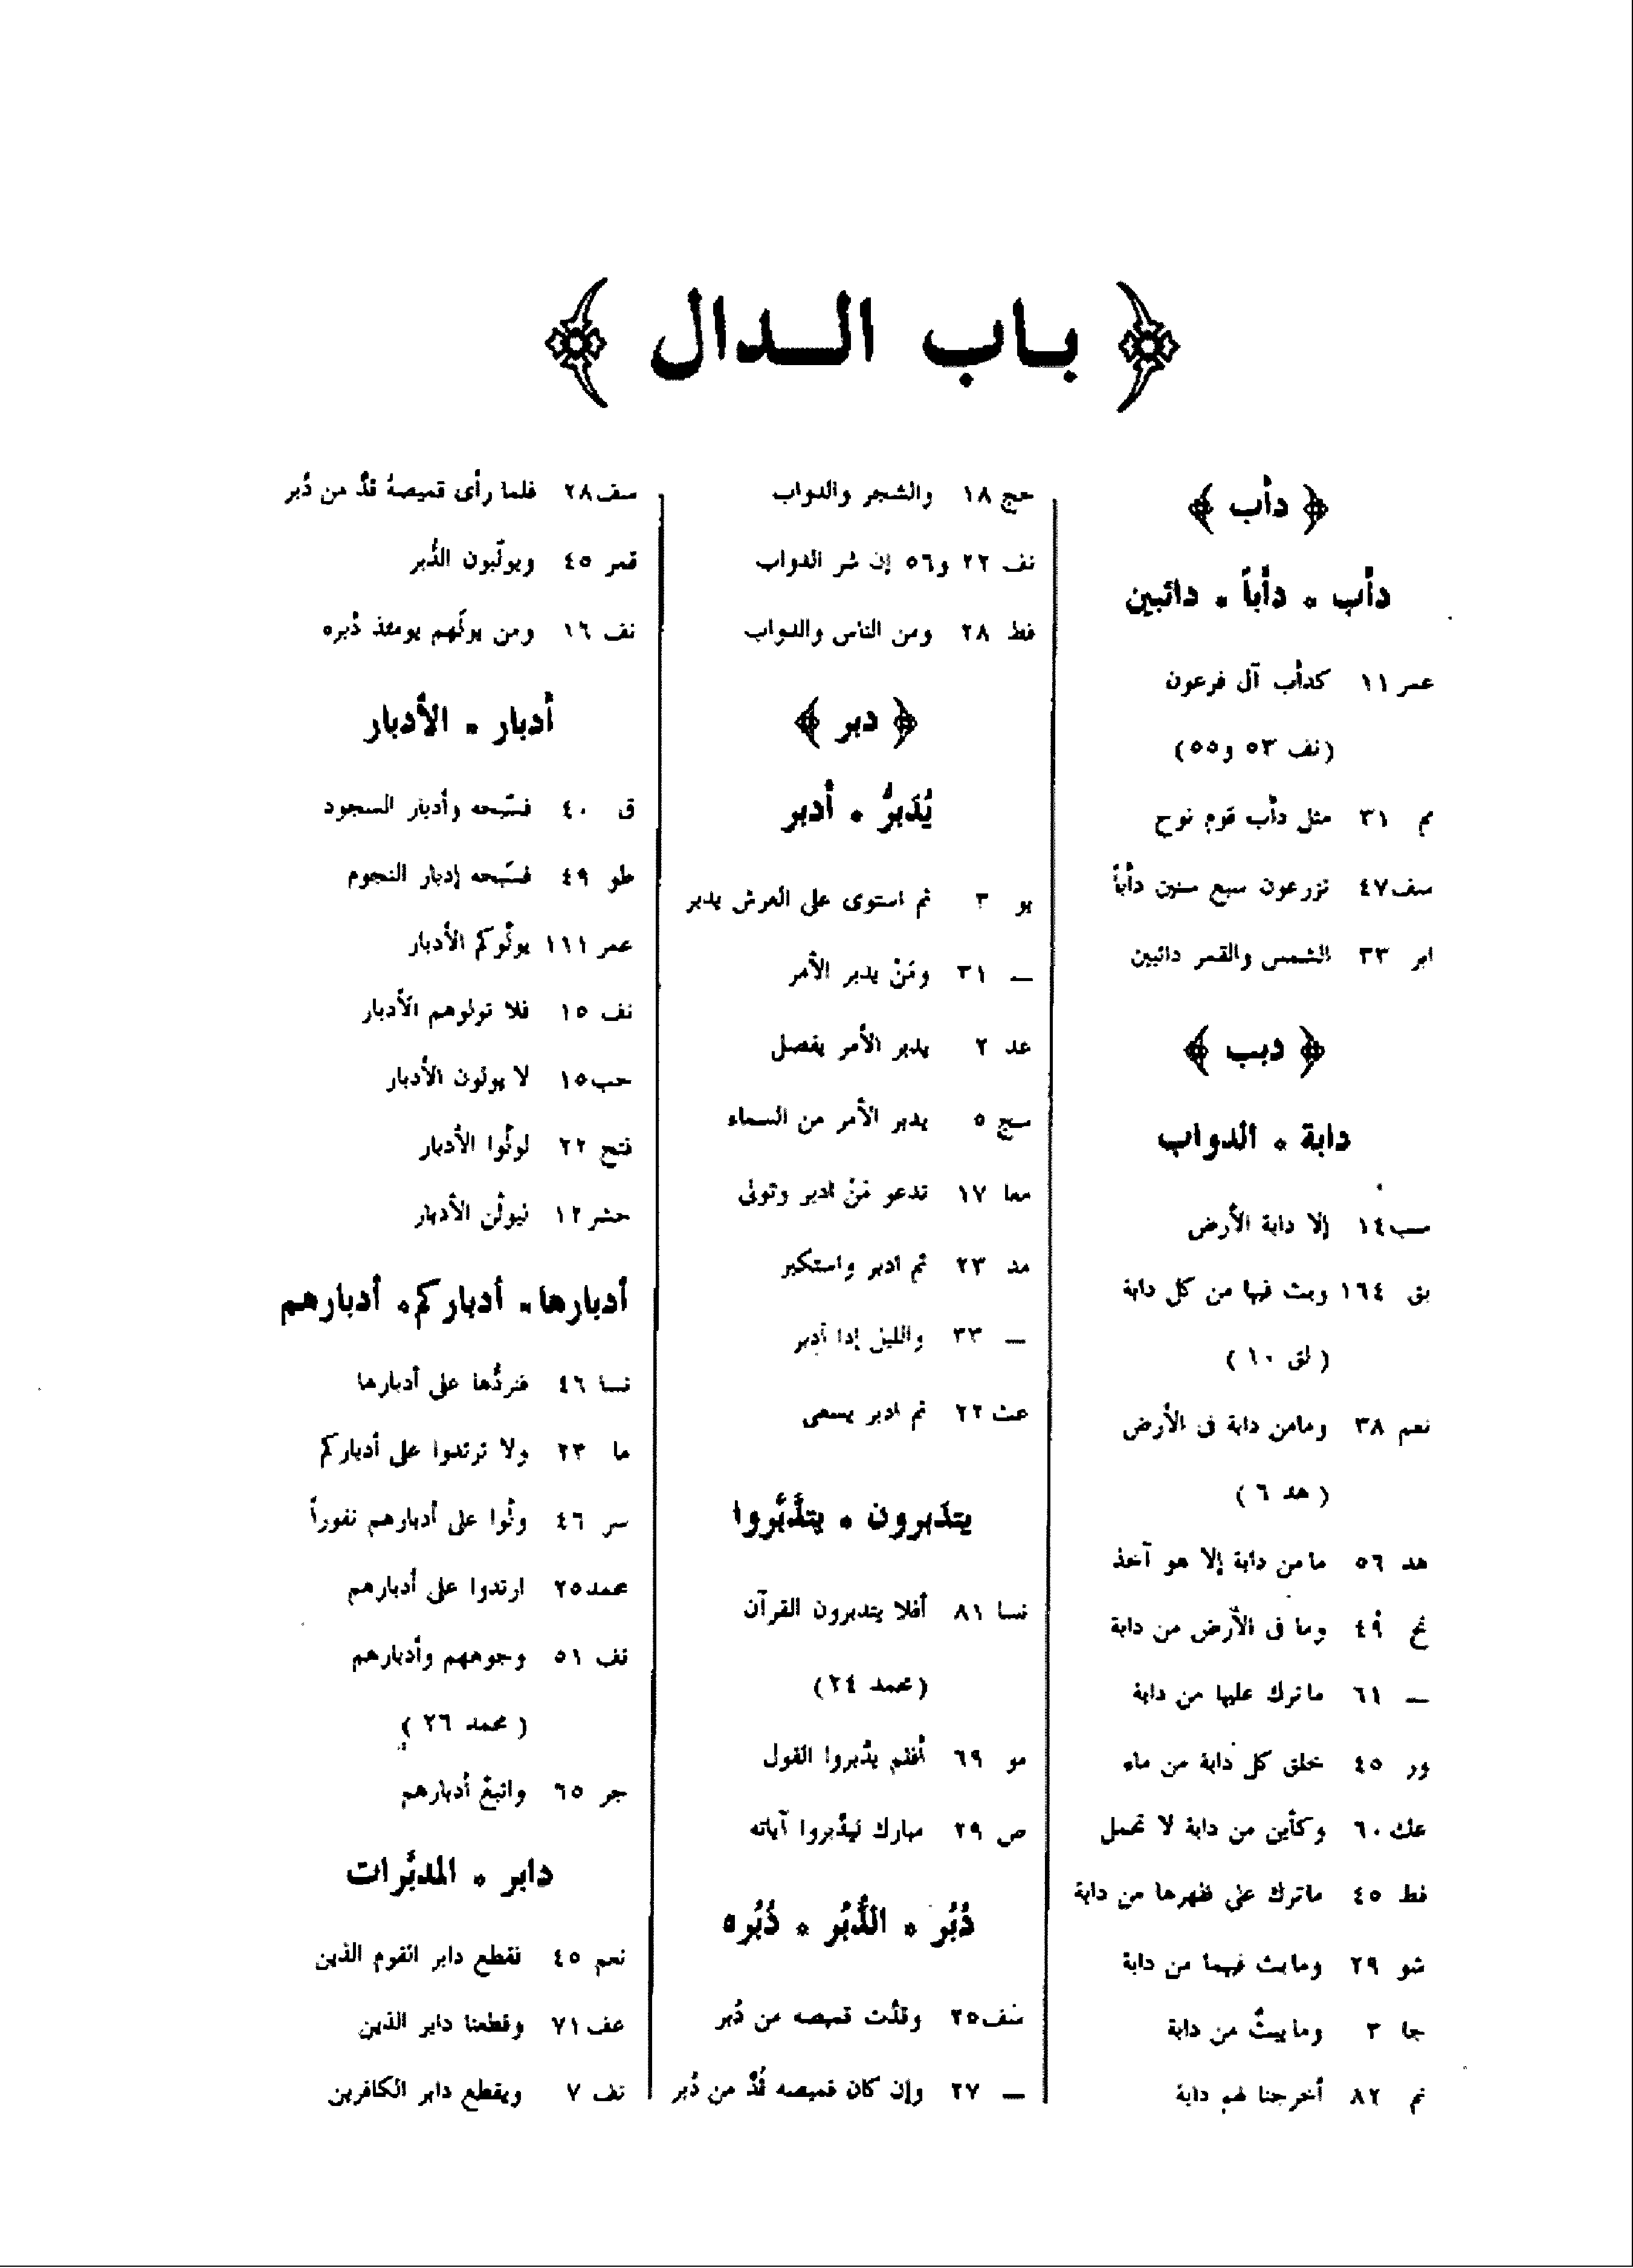 ﴿ باب الـدال ﴾
﴿ دأب ﴾
دأب * دأباً * دائبين
عمر ١١ كدأب آل فرعون
(نف ٥٣ و٥٥)
مم ٣١ مثل دأب قوم نوح
سف ٤٧ تزرعون سبع سنين دأباً
ابر ٣٣ الشمس والقمر دائبين
﴿ دبب ﴾
دابة * الدواب
سب ١٤ إلا دابة الأرض
بق ١٦٤ وبث فيها من كل دابة
( لق ١٠ )
نعم ٣٨ ومامن دابة فى الأرض
( هد ٦ )
هد ٥٦ مامن دابة إلا هو آخذ
نح ٤٩ وما فى الأرض من دابة
— ٦١ ماترك عليها من دابة
ور ٤٥ خلق كل دابة من ماء
عك ٦٠ وكأين من دابة لا تحمل
فط ٤٥ ماترك على ظهرها من دابة
شو ٢٩ ومابث فيهما من دابة
جا ٣ ومايبثُّ من دابة
نم ٨٢ أخرجنا لهم دابة
حج ١٨ والشجر والدواب
نف ٢٢ و٥٦ إن شر الدواب
فط ٢٨ ومن الناس والدواب
﴿ دبر ﴾
يُدَبرُّ * أدبر
يو ٣ ثم استوى على العرش يدبر
— ٣١ ومَنْ يدبر الأمر
عد ٢ يدبر الأمر يفصل
سج ٥ يدبر الأمر من السماء
معا ١٧ تدعو مَنْ ادبر وتولى
مد ٢٣ ثم ادبر واستكبر
— ٣٣ والليل إذا أدبر
عث ٢٢ ثم ادبر يسعى
يتدبرون * يتدَّبَّروا
نسا ٨١ أفلا يتدبرون القرآن
(محمد ٢٤)
مو ٦٩ أفلم يدَّبروا القول
ص ٢٩ مبارك ليدَّبروا آياته
دُبُر * الدُّبُر * دُبُره
سف ٢٥ وقدَّت قميصه من دُبر
— ٢٧ وإن كان قميصه قُدَّ من دُبر
سف ٢٨ فلما رأى قميصهُ قدَّ من دُبر
قمر ٤٥ ويولّبون الدُّبر
نف ١٦ ومن يولّهم يومئذ دُبره
أدبار * الأدبار
ق ٤٠ فسّبحه وأدبار السجود
طو ٤٩ فسّبحه إدبار النجوم
عمر ١١١ يولُّوكم الأدبار
نف ١٥ فلا تولوهم الأدبار
حب ١٥ لا يولون الأدبار
فتح ٢٢ لولَّوا الأدبار
حشر ١٢ ليولُّن الأدبار
أدبارها * أدباركم * أدبارهم
نسا ٤٦ فنردُّها على أدبارها
ما ٢٣ ولا ترتدوا على أدباركم
سر ٤٦ ولَّوا على أدبارهم نفوراً
محمد ٢٥ ارتدوا على أدبارهم
نف ٥١ وجوههم وأدبارهم
( محمد ٢٦ )
جر ٦٥ واتبعْ أدبارهم
دابر * المدبِّرات
نعم ٤٥ فقطع دابر القوم الذين
عف ٧١ وقطعنا دابر الذين
نف ٧ ويقطع دابر الكافرين